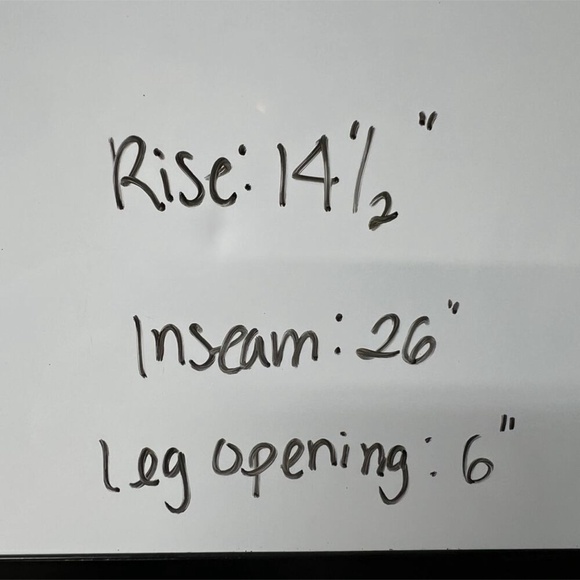 Rise: 14 1/2 "
Inseam: 26"
Leg opening: 6"